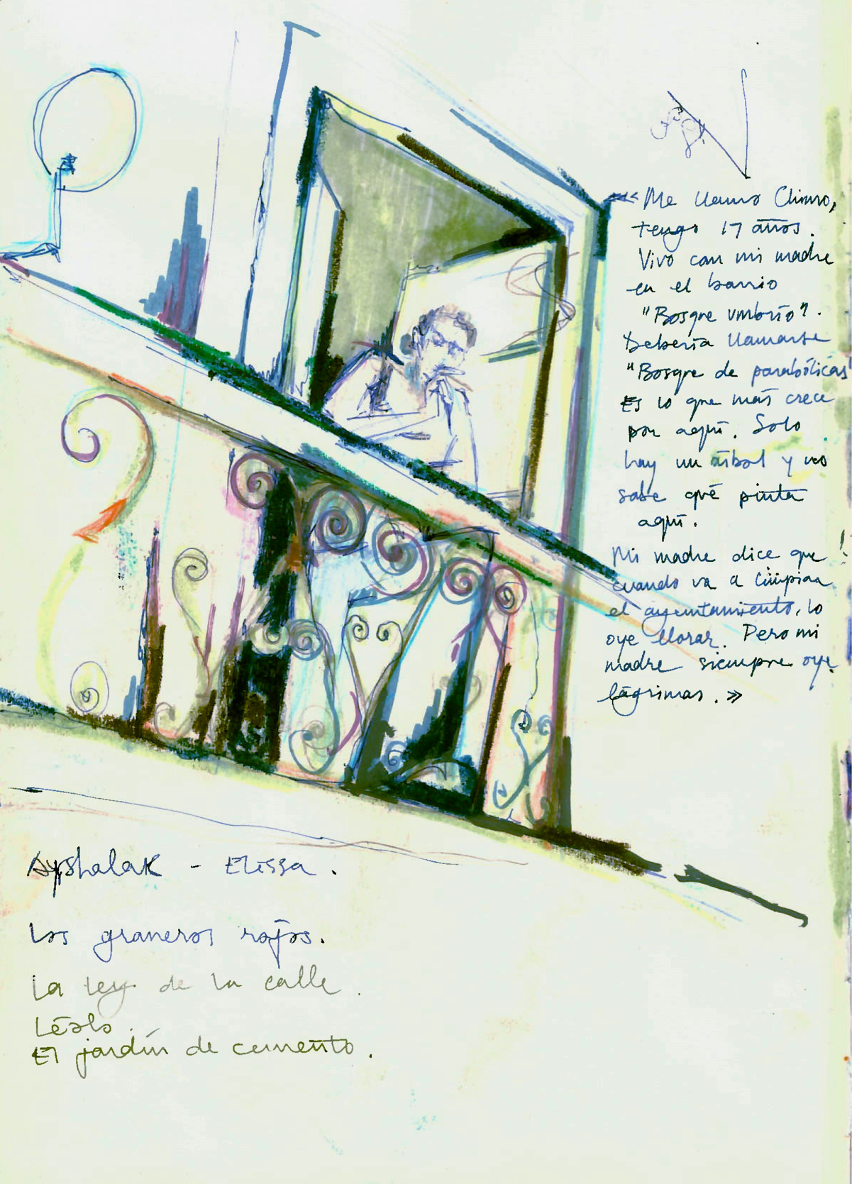 «Me llamo Chimo,
tengo 17 años.
Vivo con mi madre
en el barrio
"Bosque umbrío".
Debería llamarse
"Bosque de parabólicas"
Es lo que más crece
por aquí. Solo
hay un árbol y no
sabe qué pinta
aquí.
Mi madre dice que
cuando va a limpiar
el ayuntamiento, lo
oye llorar. Pero mi
madre siempre oye
lágrimas.»
Ayshalak - Elissa.
Los graneros rojos.
La ley de la calle.
Léolo.
El jardín de cemento.